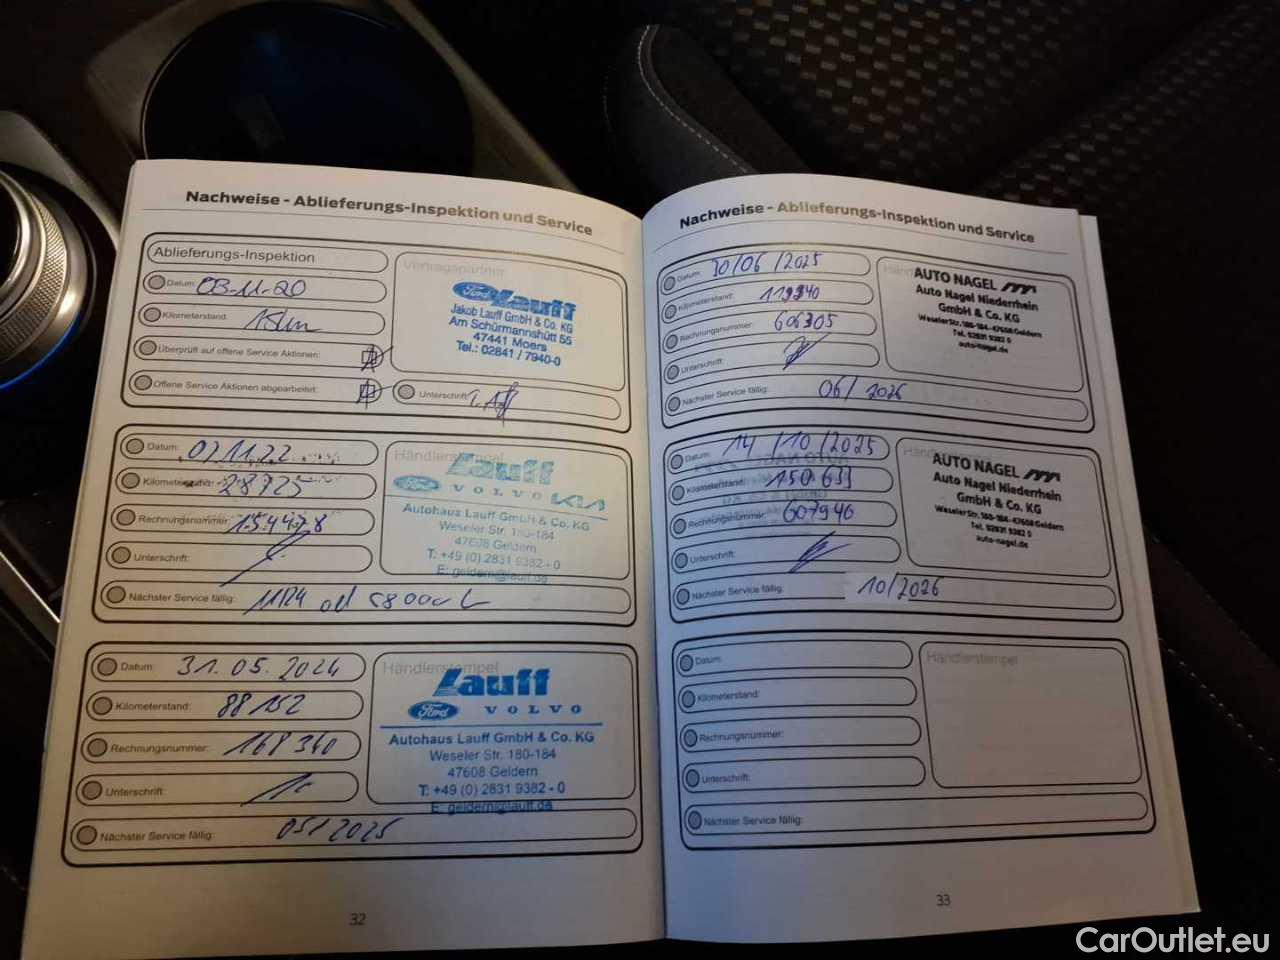 Nachweise - Ablieferungs-Inspektion und Service
Ablieferungs-Inspektion
Datum: 03-11-20
Kilometerstand:
Überprüft auf offene Service Aktionen:
Offene Service Aktionen abgearbeitet:
Vertragspartner
Ford Lauff
Jakob Lauff GmbH & Co. KG
Am Schürmannshütt 55
47441 Moers
Tel.: 02841 / 7940-0
Unterschrift:
Datum: 07.11.22
Kilometerstand: 28725
Rechnungsnummer: 154478
Unterschrift:
Nächster Service fällig: 11/24
Händlerstempel
Lauff
Ford VOLVO KIA
Autohaus Lauff GmbH & Co. KG
Weseler Str. 180-184
47608 Geldern
T: +49 (0) 2831 9382 - 0
E: geldern@lauff.de
Datum: 31.05.2024
Kilometerstand: 88152
Rechnungsnummer: 168340
Unterschrift:
Nächster Service fällig: 05/2025
Händlerstempel
Lauff
Ford VOLVO
Autohaus Lauff GmbH & Co. KG
Weseler Str. 180-184
47608 Geldern
T: +49 (0) 2831 9382 - 0
E: geldern@lauff.de
32
Nachweise - Ablieferungs-Inspektion und Service
Datum: 30/06/2025
Kilometerstand: 119340
Rechnungsnummer: 606305
Unterschrift:
Nächster Service fällig: 06/2026
AUTO NAGEL
Auto Nagel Niederrhein
GmbH & Co. KG
Weseler Str. 180-184 - 47608 Geldern
Tel. 02831 9382 0
auto-nagel.de
Datum: 14/10/2025
Kilometerstand: 150633
Rechnungsnummer: 607940
Unterschrift:
Nächster Service fällig: 10/2026
Händlerstempel
AUTO NAGEL
Auto Nagel Niederrhein
GmbH & Co. KG
Weseler Str. 180-184 - 47608 Geldern
Tel. 02831 9382 0
auto-nagel.de
Datum:
Kilometerstand:
Rechnungsnummer:
Unterschrift:
Nächster Service fällig:
Händlerstempel
33
CarOutlet.eu